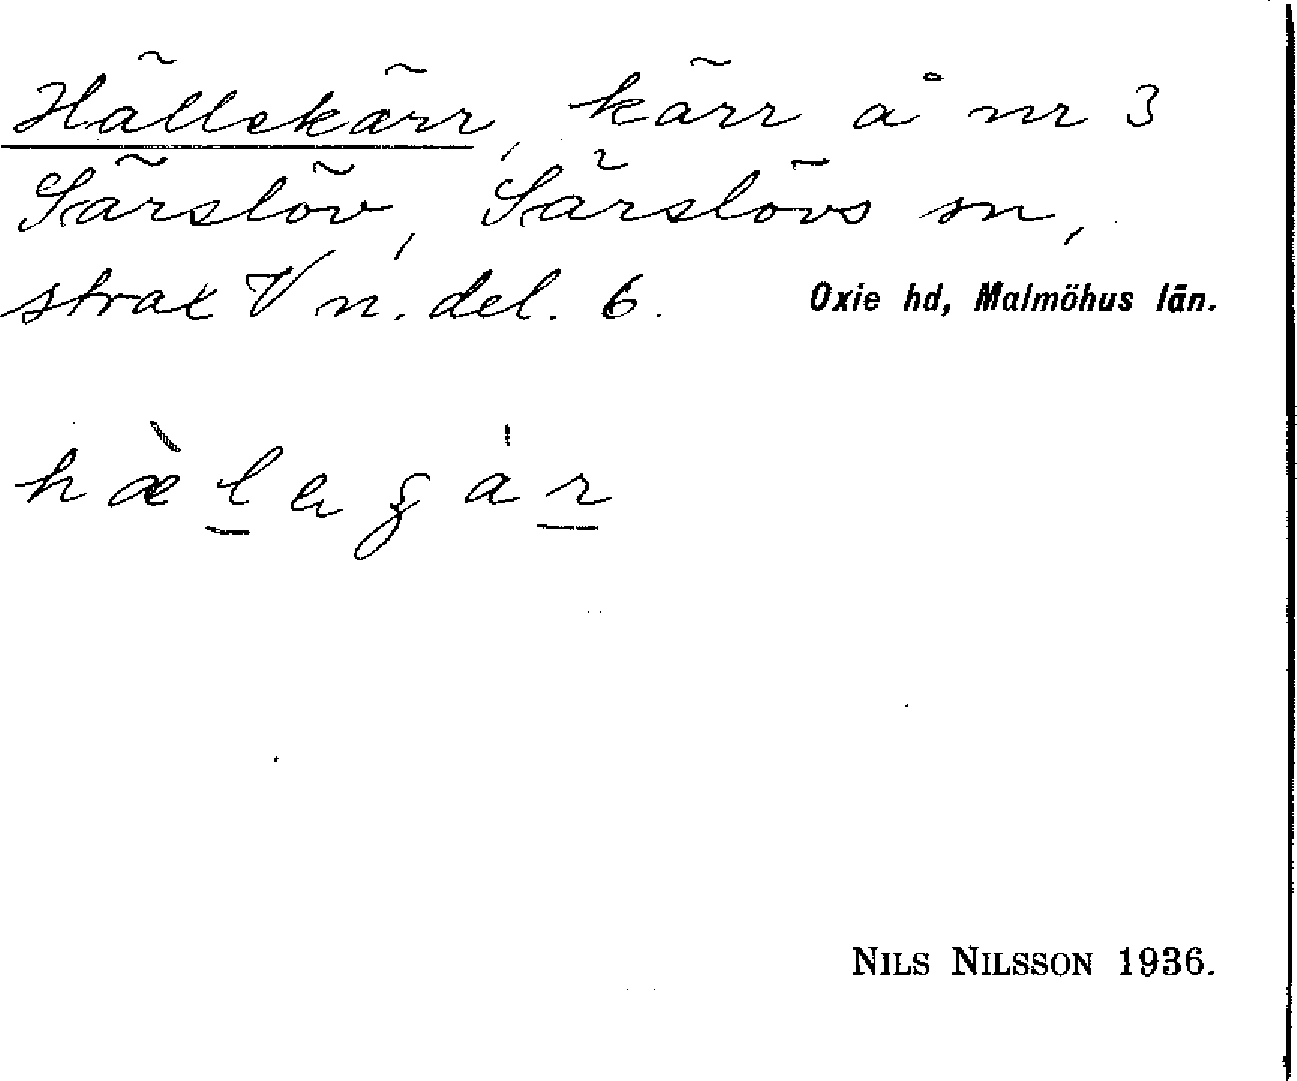 Hällekärr, kärr å nr 3
Särslöv, Särslövs sn,
strax V n. del. 6. Oxie hd, Malmöhus län.
hæ̀lagár
NILS NILSSON 1936.